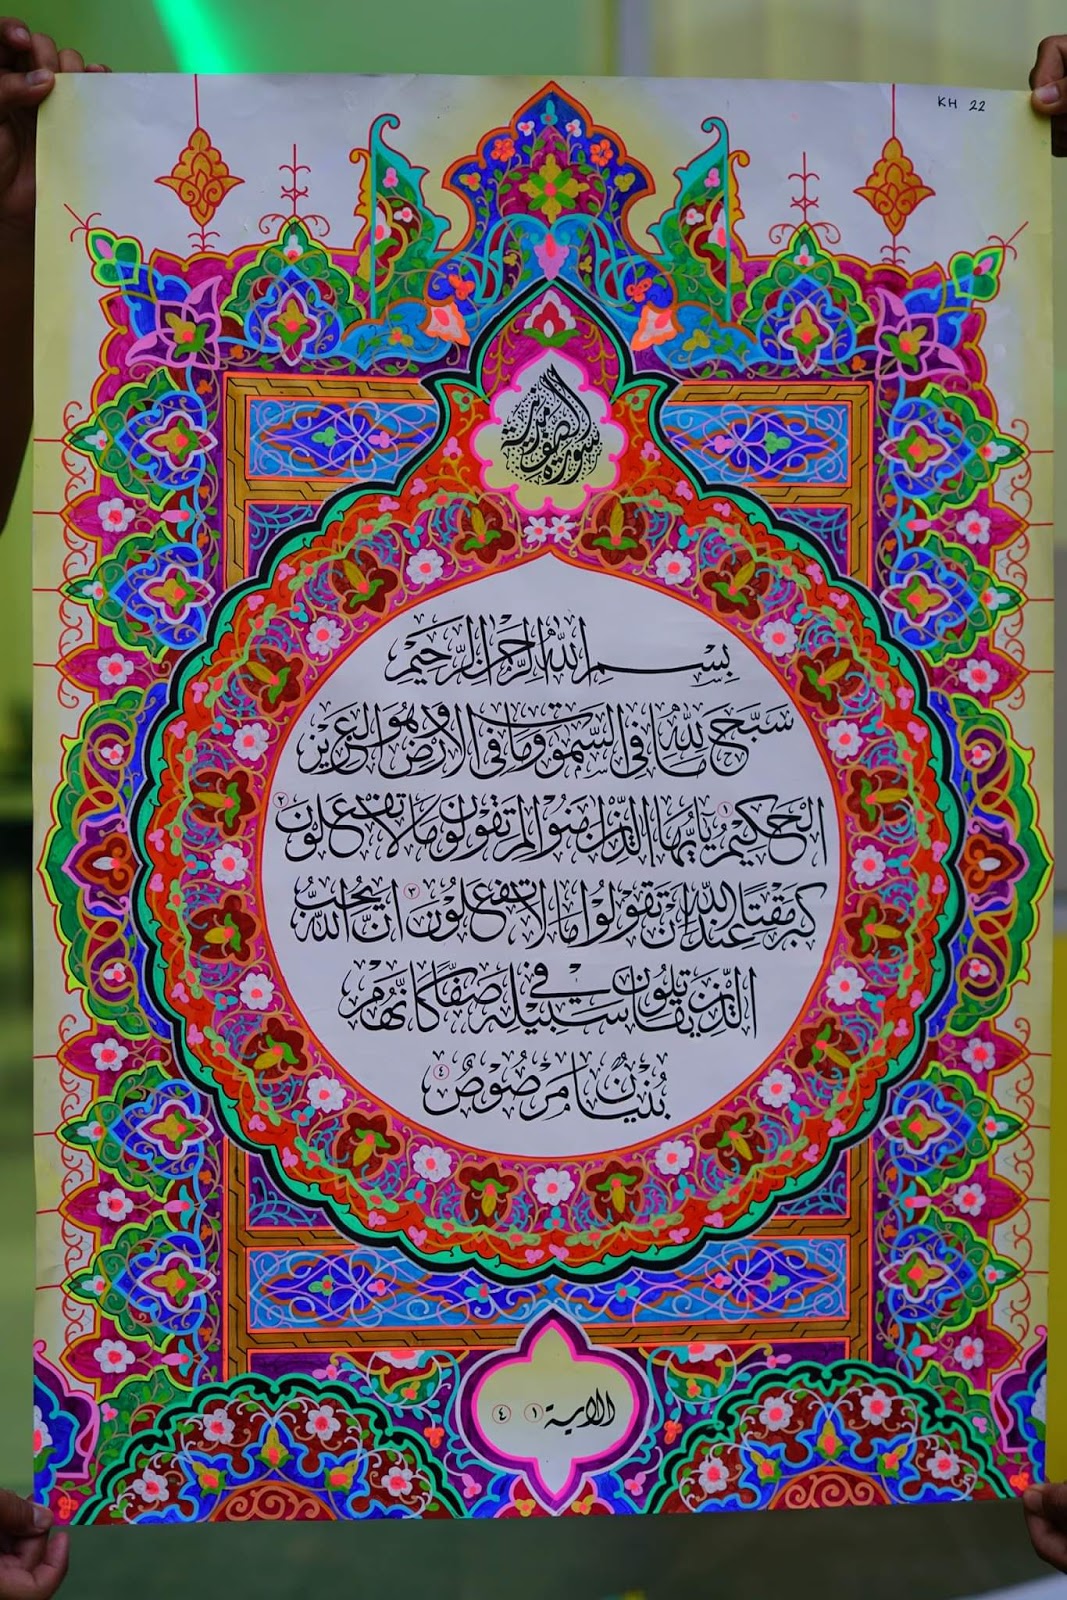 KH 22
سورة الصف مدنية
بِسْمِ اللهِ الرَّحْمٰنِ الرَّحِيْمِ
سَبَّحَ لِلّٰهِ مَا فِى السَّمٰوٰتِ وَمَا فِى الْاَرْضِ وَهُوَ الْعَزِيْزُ
الْحَكِيْمُ ١ يٰٓاَيُّهَا الَّذِيْنَ اٰمَنُوْا لِمَ تَقُوْلُوْنَ مَا لَا تَفْعَلُوْنَ ٢
كَبُرَ مَقْتًا عِنْدَ اللّٰهِ اَنْ تَقُوْلُوْا مَا لَا تَفْعَلُوْنَ ٣ اِنَّ اللّٰهَ يُحِبُّ
الَّذِيْنَ يُقَاتِلُوْنَ فِيْ سَبِيْلِهٖ صَفًّا كَاَنَّهُمْ
بُنْيَانٌ مَّرْصُوْصٌ ٤
الاية ١ ٤